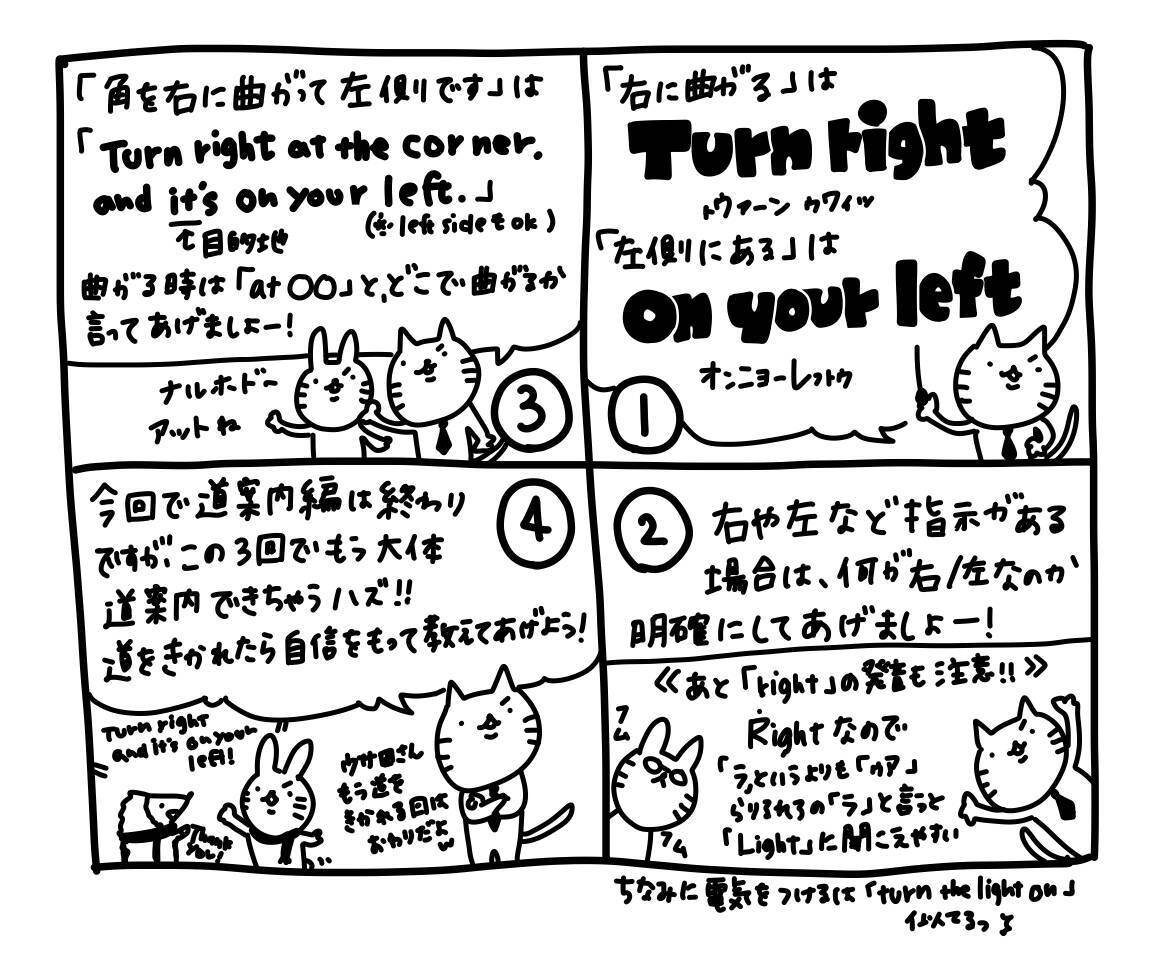 「右に曲がる」は
Turn right
トゥァーン ゥワイッ
「左側にある」は
on your left
オンニョーレフトゥ
1
2
右や左など指示がある
場合は、何が右/左なのか
明確にしてあげましょー!
≪あと「right」の発音も注意!!≫
フム
Rightなので
「ラ」というよりも「ゥア」
らりるれろの「ラ」と言うと
「Light」に聞こえやすい
フム
「角を右に曲がって左側です」は
「Turn right at the corner.
and it's on your left.」
↑目的地
(※left sideもok)
曲がる時は「at 〇〇」と、どこで曲がるか
言ってあげましょー!
ナルホドー
アットね
3
4
今回で道案内編は終わり
ですが、この3回でもう大体
道案内できちゃうハズ!!
道をきかれたら自信をもって教えてあげよう!
Turn right
and it's on your
left!
Thank
you!
ウサ田さん
もう道を
きかれる回は
おわりだよ
w
ちなみに電気をつけるは「turn the light on」
似てるっょ